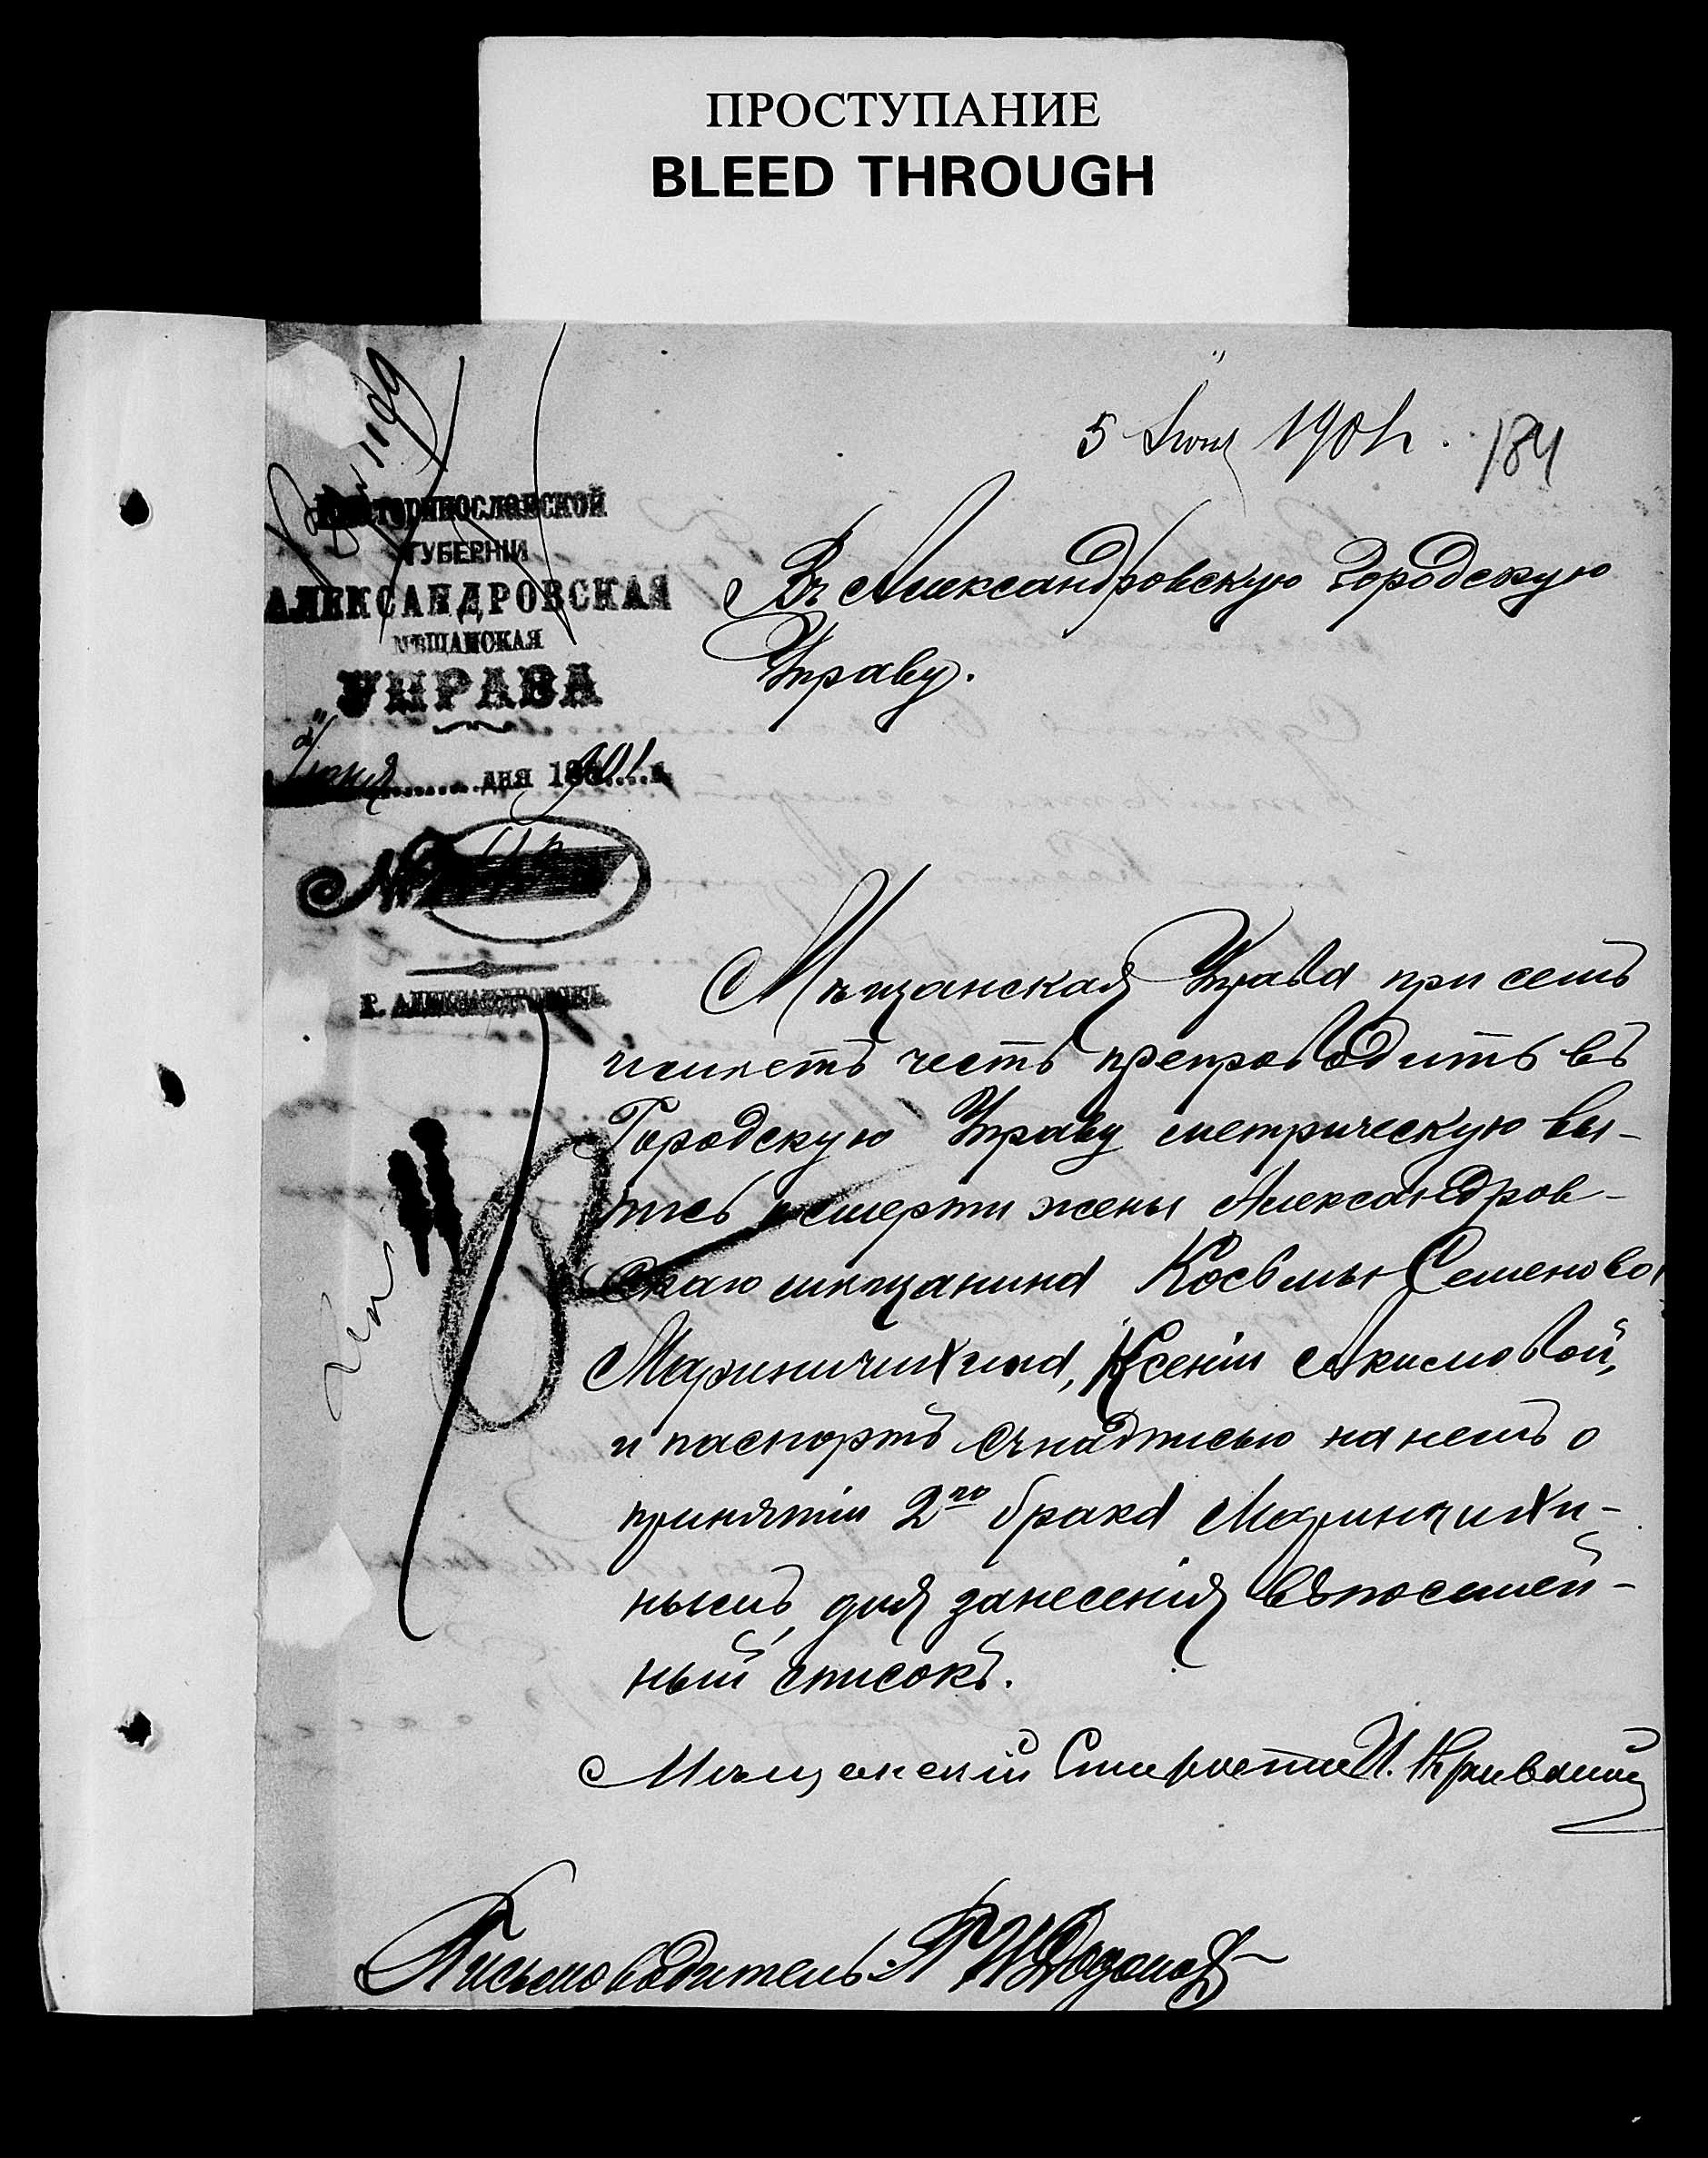 ПРОСТУПАНИЕ
BLEED THROUGH
5 Іюня 1901 г.
184
Екатеринославской
ГУБЕРНІИ
АЛЕКСАНДРОВСКАЯ
МѢЩАНСКАЯ
УПРАВА
Іюня дня 1901 г.
№
г. АЛЕКСАНДРОВСКЪ
Въ Александровскую Городскую
Управу.
Мѣщанская Управа при семъ
имѣетъ честь препроводить въ
Городскую Управу метрическую вы-
пись о смерти жены Александров-
скаго мѣщанина Косьмы Семенова
Мариничихина, Ксеніи Акимовой,
и паспортъ съ надписью на немъ о
принятіи 2го брака Мариничихи-
нымъ, для занесенія въ посемей-
ный списокъ.
Мѣщанскій Староста И.
Письмоводитель